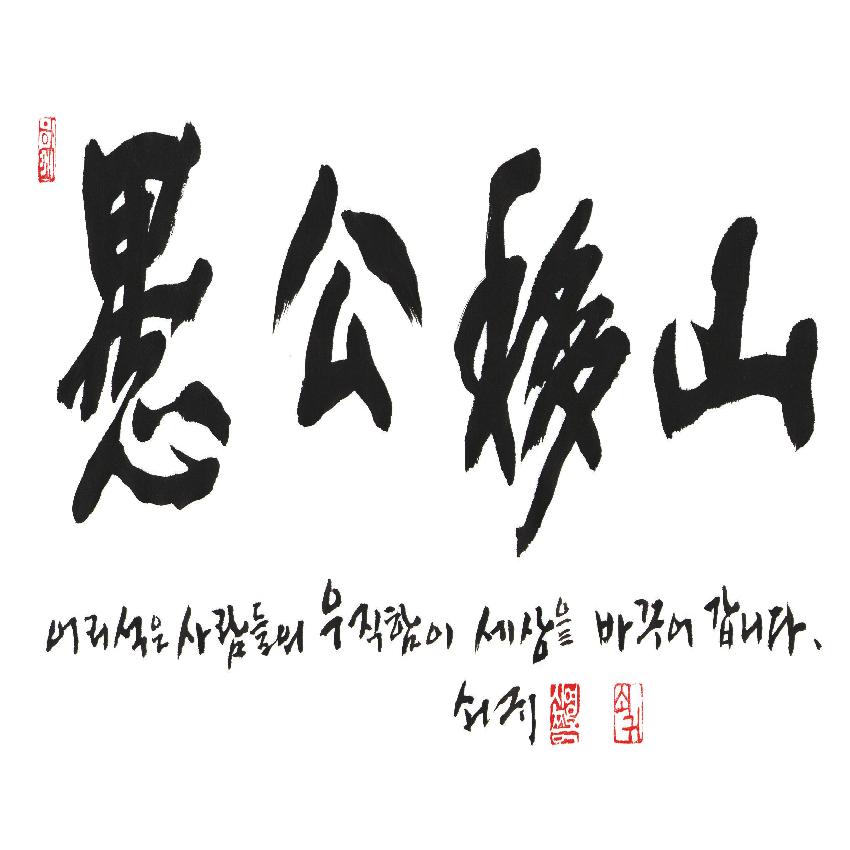 愚公移山
어리석은 사람들의 우직함이 세상을 바꾸어 갑니다.
쇠귀 쇠귀